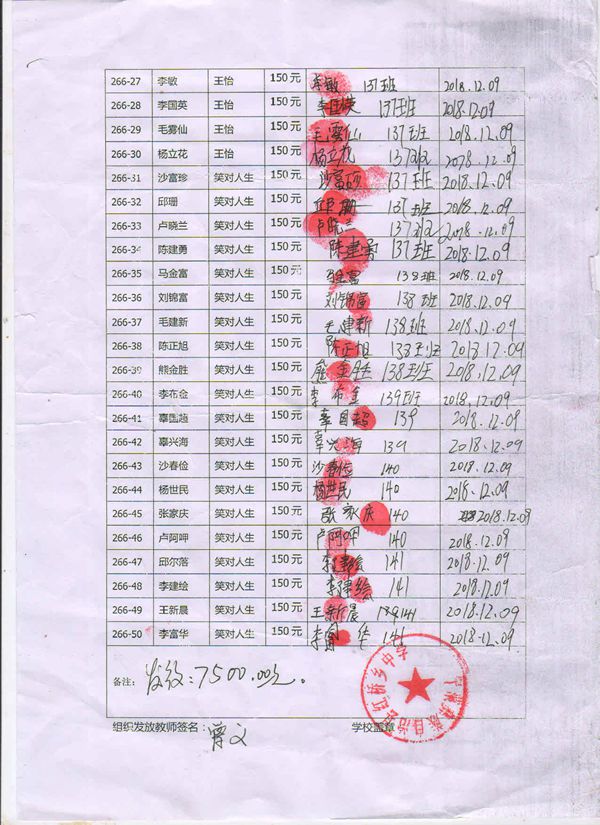 266-27 李敏 王怡 150元 李敏 137班 2018.12.09
266-28 李国英 王怡 150元 李国英 137班 2018.12.09
266-29 毛雾仙 王怡 150元 毛雾仙 137班 2018.12.09
266-30 杨立花 王怡 150元 杨立花 137班 2018.12.09
266-31 沙富珍 笑对人生 150元 沙富珍 137班 2018.12.09
266-32 邱珊 笑对人生 150元 邱珊 137班 2018.12.09
266-33 卢晓兰 笑对人生 150元 卢晓兰 137班 2018.12.09
266-34 陈建勇 笑对人生 150元 陈建勇 137班 2018.12.09
266-35 马金富 笑对人生 150元 138班 2018.12.09
266-36 刘锦富 笑对人生 150元 刘锦富 138班 2018.12.09
266-37 毛建新 笑对人生 150元 毛建新 138班 2018.12.09
266-38 陈正旭 笑对人生 150元 陈正旭 138班 2018.12.09
266-39 熊金胜 笑对人生 150元 熊金胜 138班 2018.12.09
266-40 李布金 笑对人生 150元 李布金 139班 2018.12.09
266-41 辜国超 笑对人生 150元 辜国超 139 2018.12.09
266-42 辜兴海 笑对人生 150元 辜兴海 139 2018.12.09
266-43 沙春俭 笑对人生 150元 沙春俭 140 2018.12.09
266-44 杨世民 笑对人生 150元 杨世民 140 2018.12.09
266-45 张家庆 笑对人生 150元 张家庆 140 2018.12.09
266-46 卢阿呷 笑对人生 150元 卢阿呷 140 2018.12.09
266-47 邱尔落 笑对人生 150元 141 2018.12.09
266-48 李建绘 笑对人生 150元 李建绘 141 2018.12.09
266-49 王新晨 笑对人生 150元 王新晨 141 2018.12.09
266-50 李富华 笑对人生 150元 李富华 141 2018.12.09
备注: 发放:7500.00元.
组织发放教师签名: 曾文 学校盖章
族自治县红桥乡中学